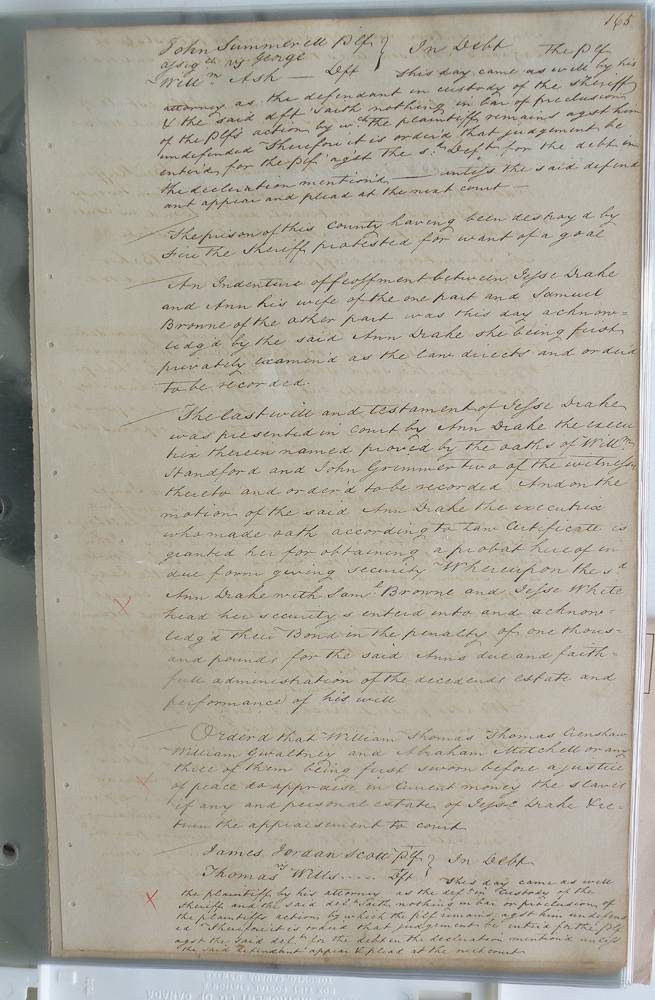 165
John Summerell Plf } In Debt The Plf
assig. of George
Will.m Ash — Dft This day came as well by his
attorney as the defendant in custody of the Sheriff
& the said dft saith nothing in bar of preclusion
of the Plfs action by wch the plaintiff remains agst him
undefended Therefore it is order'd that judgement be
enter'd for the Plf agst the s.d Deft for the debt in
the declaration mention'd — unless the said defend
ant appear and plead at the next court —
The prison of this County having been destroy'd by
Fire the Sheriff protested for want of a goal
An Indenture of feoffment between Jesse Drake
and Ann his wife of the one part and Samuel
Browne of the other part was this day acknow=
ledg'd by the said Ann Drake she being first
privately examin'd as the law directs and order'd
to be recorded.
The last will and testament of Jesse Drake
was presented in court by Ann Drake the execu
trix therein named proved by the oaths of Will.m
Standford and John Grimmer two of the witnesses
thereto and order'd to be recorded And on the
motion of the said Ann Drake the executrix
who made oath according to Law Certificate is
granted her for obtaining a probat hereof in
due form giving security Whereupon the s.d
Ann Drake with Sam.l Browne and Jesse White
head her securitys enterd into and acknow=
ledg'd their Bond in the penalty of one thous=
and pounds for the said Anns due and faith=
full administration of the decedents estate and
performance of his will
Orderd that William Thomas Thomas Crenshaw
William Gwaltney and Abraham Mitchell or any
three of them being first sworn before a justice
of peace do appraise in Current money the slaves
if any and personal estate of Jesse Drake Dec
turn the appraisement to court
James Jordan Scott Plf } In Debt
Thomas Wills .... Dft This day came as well
the plaintiff by his attorney as the def.t in Custody of the
Sheriff and the said def.t saith nothing in bar or preclusion of
the plaintiffs action by which the plf remains agst him undefend
ed Therefore it is orderd that judgement be enterd for the Plf
agst the said def.t for the debt in the declaration mention'd unless
the said defendant appear & plead at the next court